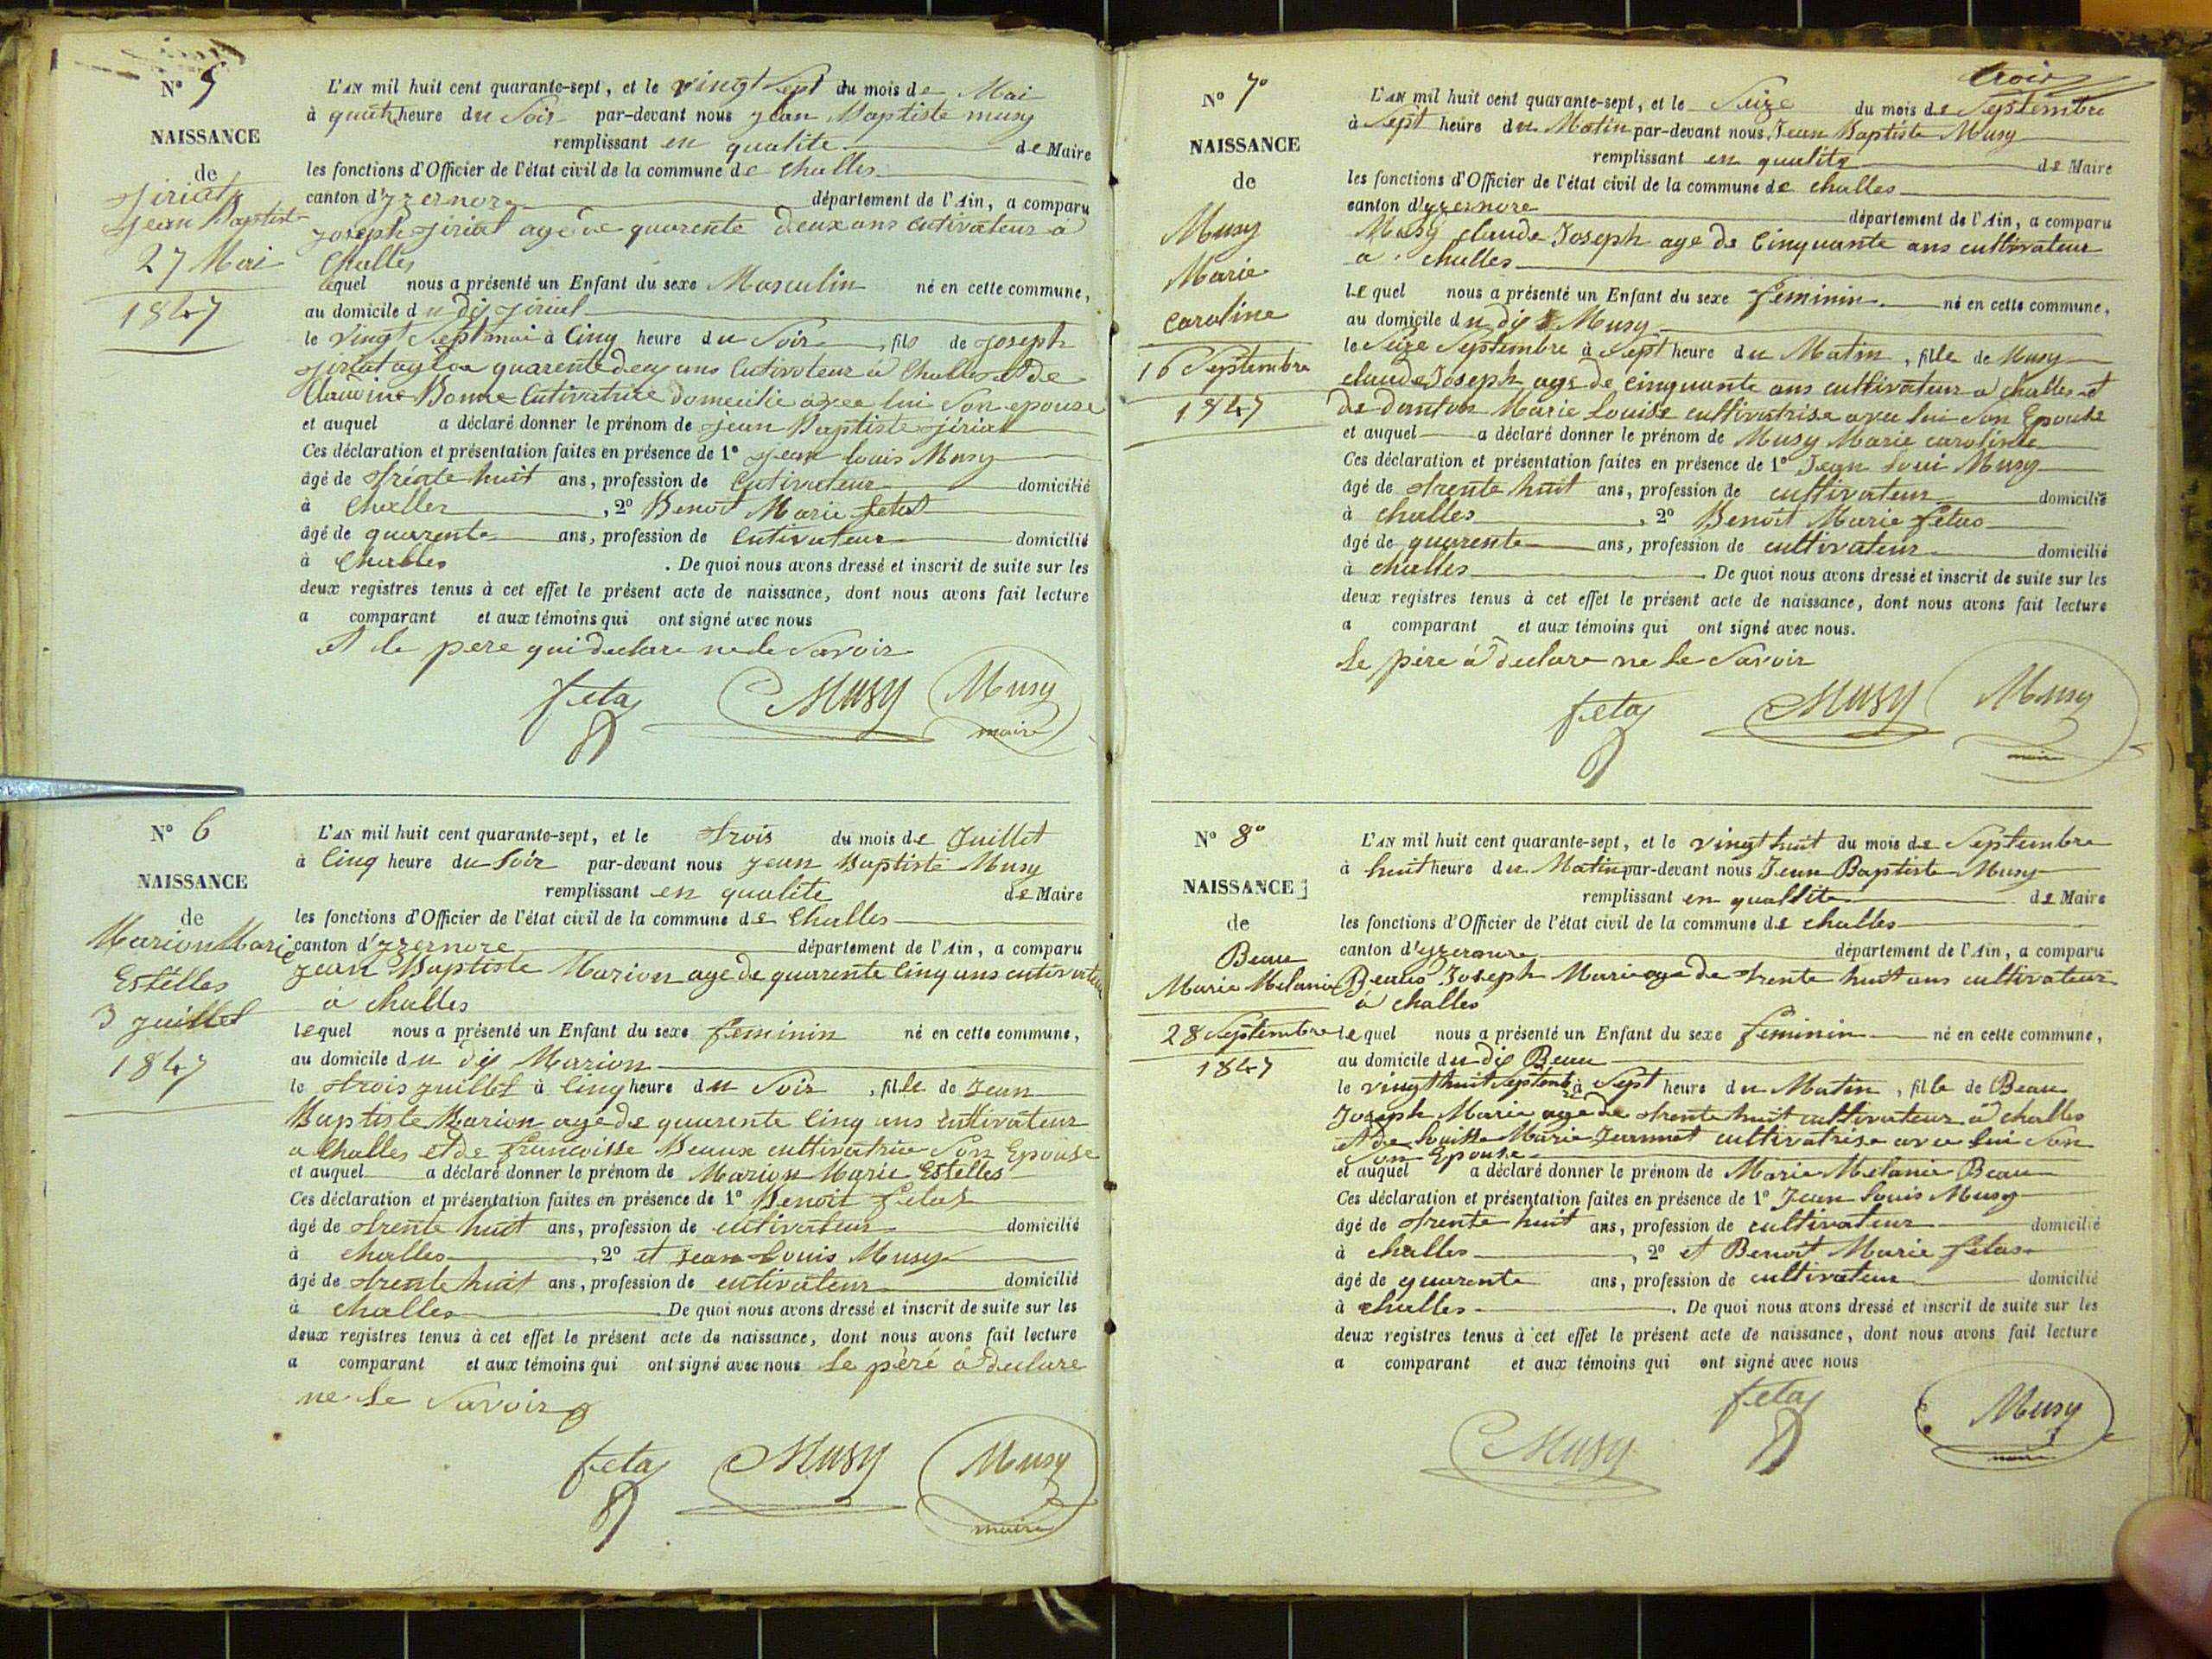 N° 5
NAISSANCE
de
Jiriat
Jean Baptiste
27 Mai
1847
L'AN mil huit cent quarante-sept, et le vingt Sept du mois de Mai
à quatr heure du Soir par-devant nous jean Baptiste musy
remplissant en qualite de Maire
les fonctions d'Officier de l'état civil de la commune de Challes
canton d'yzernore département de l'Ain, a comparu
joseph jiriat agé de quarente deux ans cutivateur a
Challes
lequel nous a présenté un Enfant du sexe Masculin né en cette commune,
au domicile du dij jiriat
le vingt Sept mai à Cinq heure du Soir, fils de joseph
jiriat agé de quarente deux ans Cutivateur a Challes et de
Claudine Bonne Cutivatrice domicilie avee lui Son epouse
et auquel a déclaré donner le prénom de jean Baptiste jiriat
Ces déclaration et présentation faites en présence de 1° jean louis Musy
âgé de trente huit ans, profession de Cutivateur domicilié
à Challes, 2° Benoit Marie fetas
âgé de quarente ans, profession de Cutivateur domicilié
à Challes. De quoi nous avons dressé et inscrit de suite sur les
deux registres tenus à cet effet le présent acte de naissance, dont nous avons fait lecture
a comparant et aux témoins qui ont signé avec nous
et le pere qui declare ne le Savoir
fetas Musy Musy
maire
N° 6
NAISSANCE
de
Marion Marie
Estelles
3 juillet
1847
L'AN mil huit cent quarante-sept, et le trois du mois de Juillet
à Cinq heure du Soir par-devant nous jean Baptiste Musy
remplissant en qualite de Maire
les fonctions d'Officier de l'état civil de la commune de Challes
canton d'yzernore département de l'Ain, a comparu
jean Baptiste Marion age de quarente Cinq ans cutivateur
à challes
lequel nous a présenté un Enfant du sexe feminin né en cette commune,
au domicile du dij Marion
le trois juillet à Cinq heure du Soir, fille de Jean
Baptiste Marion age de quarente Cinq ans Cultivateur
a Challes et de francoisse Beaux cultivatrice Son Epouse
et auquel a déclaré donner le prénom de Marion Marie Estelles
Ces déclaration et présentation faites en présence de 1° Benoit fetas
âgé de trente huit ans, profession de cutivateur domicilié
à challes, 2° et Jean Louis Musy
âgé de trente huit ans, profession de cutivateur domicilié
à challes. De quoi nous avons dressé et inscrit de suite sur les
deux registres tenus à cet effet le présent acte de naissance, dont nous avons fait lecture
a comparant et aux témoins qui ont signé avec nous le péré à declare
ne le Savoir
fetas Musy Musy
maire
trois
N° 7°
NAISSANCE
de
Musy
Marie
caroline
16 Septembre
1847
L'AN mil huit cent quarante-sept, et le Seize du mois de Septembre
à Sept heure du Matin par-devant nous Jean Baptiste Musy
remplissant en qualite de Maire
les fonctions d'Officier de l'état civil de la commune de challes
canton d'yzernore département de l'Ain, a comparu
Musy claude Joseph age de Cinquante ans cultivateur
a challes
lequel nous a présenté un Enfant du sexe feminin né en cette commune,
au domicile du dij Musy
le Seize Septembre à Sept heure du Matin, fille de Musy
claude Joseph age de cinquante ans cultivateur a challes et
de danton Marie Louise cultivatrise avec lui Son Epouse
et auquel a déclaré donner le prénom de Musy Marie caroline
Ces déclaration et présentation faites en présence de 1° Jean Loui Musy
âgé de trente huit ans, profession de cultivateur domicilié
à challes, 2° Benoit Marie fetas
âgé de quarente ans, profession de cultivateur domicilié
à challes. De quoi nous avons dressé et inscrit de suite sur les
deux registres tenus à cet effet le présent acte de naissance, dont nous avons fait lecture
a comparant et aux témoins qui ont signé avec nous.
le père à declare ne le Savoir
fetas Musy Musy
maire
N° 8°
NAISSANCE
de
Beau
Marie Melanie
28 Septembre
1847
L'AN mil huit cent quarante-sept, et le vingt huit du mois de Septembre
à huit heure du Matin par-devant nous Jean Baptiste Musy
remplissant en qualité de Maire
les fonctions d'Officier de l'état civil de la commune de challes
canton d'yzernore département de l'Ain, a comparu
Beau Joseph Marie age de trente huit ans cultivateur
à challes
lequel nous a présenté un Enfant du sexe feminin né en cette commune,
au domicile du dij Beau
le vingt huit Septemb à Sept heure du Matin, fille de Beau
Joseph Marie age de trente huit cultivateur à challes
et de louisse Marie Jeannet cultivatrise avec lui Son
Son Epouse
et auquel a déclaré donner le prénom de Marie Melanie Beau
Ces déclaration et présentation faites en présence de 1° Jean Louis Musy
âgé de trente huit ans, profession de cultivateur domicilié
à challes, 2° et Benoit Marie fetas
âgé de quarente ans, profession de cultivateur domicilié
à challes. De quoi nous avons dressé et inscrit de suite sur les
deux registres tenus à cet effet le présent acte de naissance, dont nous avons fait lecture
a comparant et aux témoins qui ont signé avec nous
fetas Musy
Musy maire